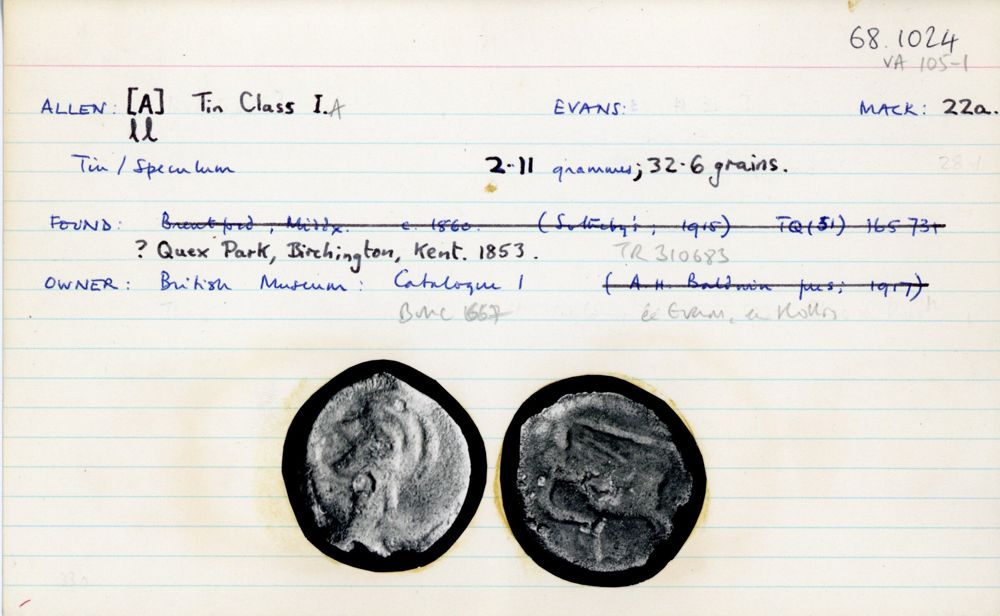 68.1024
VA 105-1
ALLEN: [A] Tin Class I.A EVANS: MACK: 22a.
ll
Tin / Speculum 2.11 grammes; 32.6 grains.
FOUND: Brentford, Middx. c. 1860. (Sotheby's, 1915) TQ(51) 165 731
? Quex Park, Birchington, Kent. 1853. TR 310683
OWNER: British Museum: Catalogue 1 (A.H. Baldwin pres; 1917)
BMC ex Evans, ex